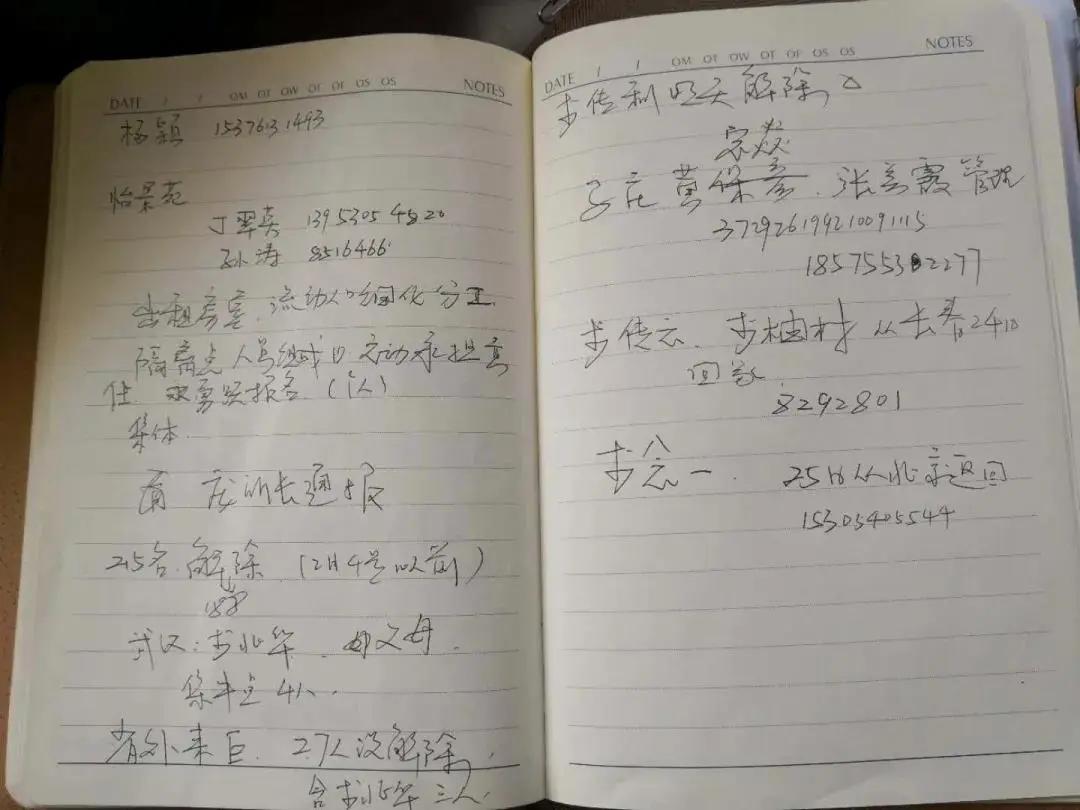 DATE / / OM OT OW OT OF OS OS NOTES
杨颖 15376131493
怡景苑
丁翠英 13953054820
孙涛 8516466
出租房屋、流动人口细化分工
隔离点人员组成 主动承担责
任 踊跃报名 (个人)
集体
庞所长通报
215名 解除 (2月4号以前)
188
武汉: 步北华、父母
集中点 4人
省外来巨 27人没解除
含步北华三人
DATE / / OM OT OW OT OF OS OS NOTES
步传利 明天解除
黄保 张 霞 管理
372926199210091115
18575530 2277
步传云、步植材 从长春2410
回家
8292801
八
步念一 25日从北京返回
15305405544